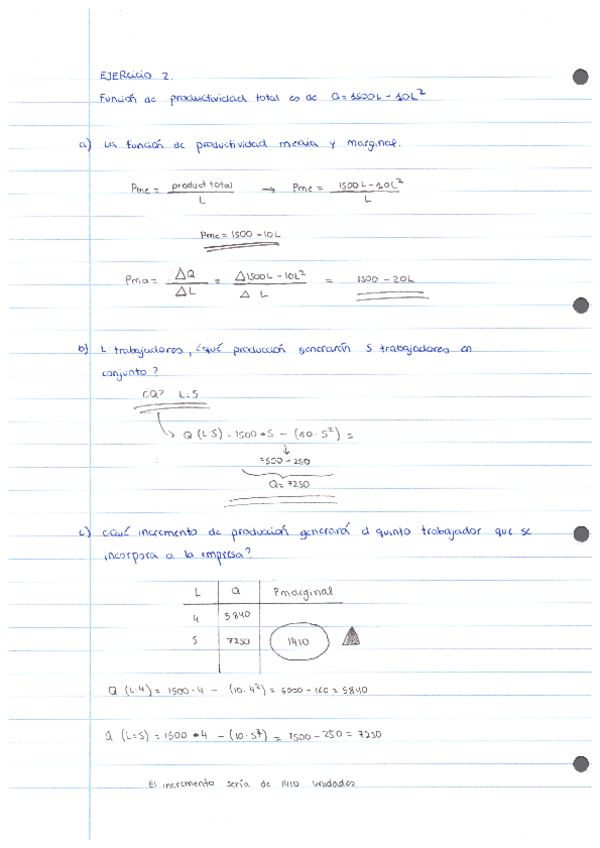 EJERCICIO 2.
Función de productividad total es de Q=1500L-10L²
a) La función de productividad media y marginal.
Pme = product total / L → Pme = 1500L-10L² / L
Pme = 1500-10L
Pma = ΔQ / ΔL = Δ1500L-10L² / Δ L = 1500-20L
b) L trabajadores, ¿qué producción generarán 5 trabajadores en
conjunto?
¿Q? L=5
Q (L=5) = 1500*5 - (10·5²) =
=500-250
Q=7250
c) ¿Qué incremento de producción generará el quinto trabajador que se
incorpora a la empresa?
L Q Pmarginal
4 5840
5 7250 1410
Q (L=4) = 1500·4 - (10·4²) = 6000-160 = 5840
Q (L=5) = 1500*4 - (10·5²) = 7500-250 = 7250
El incremento sería de 1410 unidades